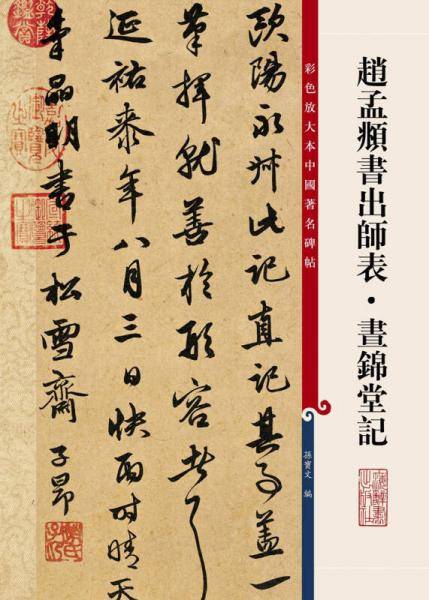 趙孟頫書出師表·晝錦堂記
彩色放大本中國著名碑帖
孫寶文 編
歐陽永叔此記直記其事蓋一
筆揮就善於形容者
延祐柒年八月三日快雨時晴天
氣晶明書于松雪齋 子昂
乾隆鑑賞
趙氏子昂